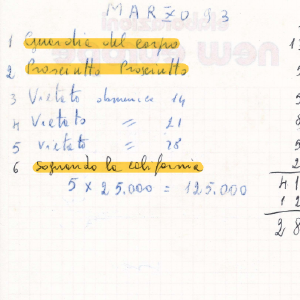 MARZO 93
1 Guardia del corpo
2 Prosciutto Prosciutto
3 Vietato domenica 14
4 Vietato = 21
5 Vietato = 28
6 sognando la california
5 x 25.000 = 125.000
41
12
28